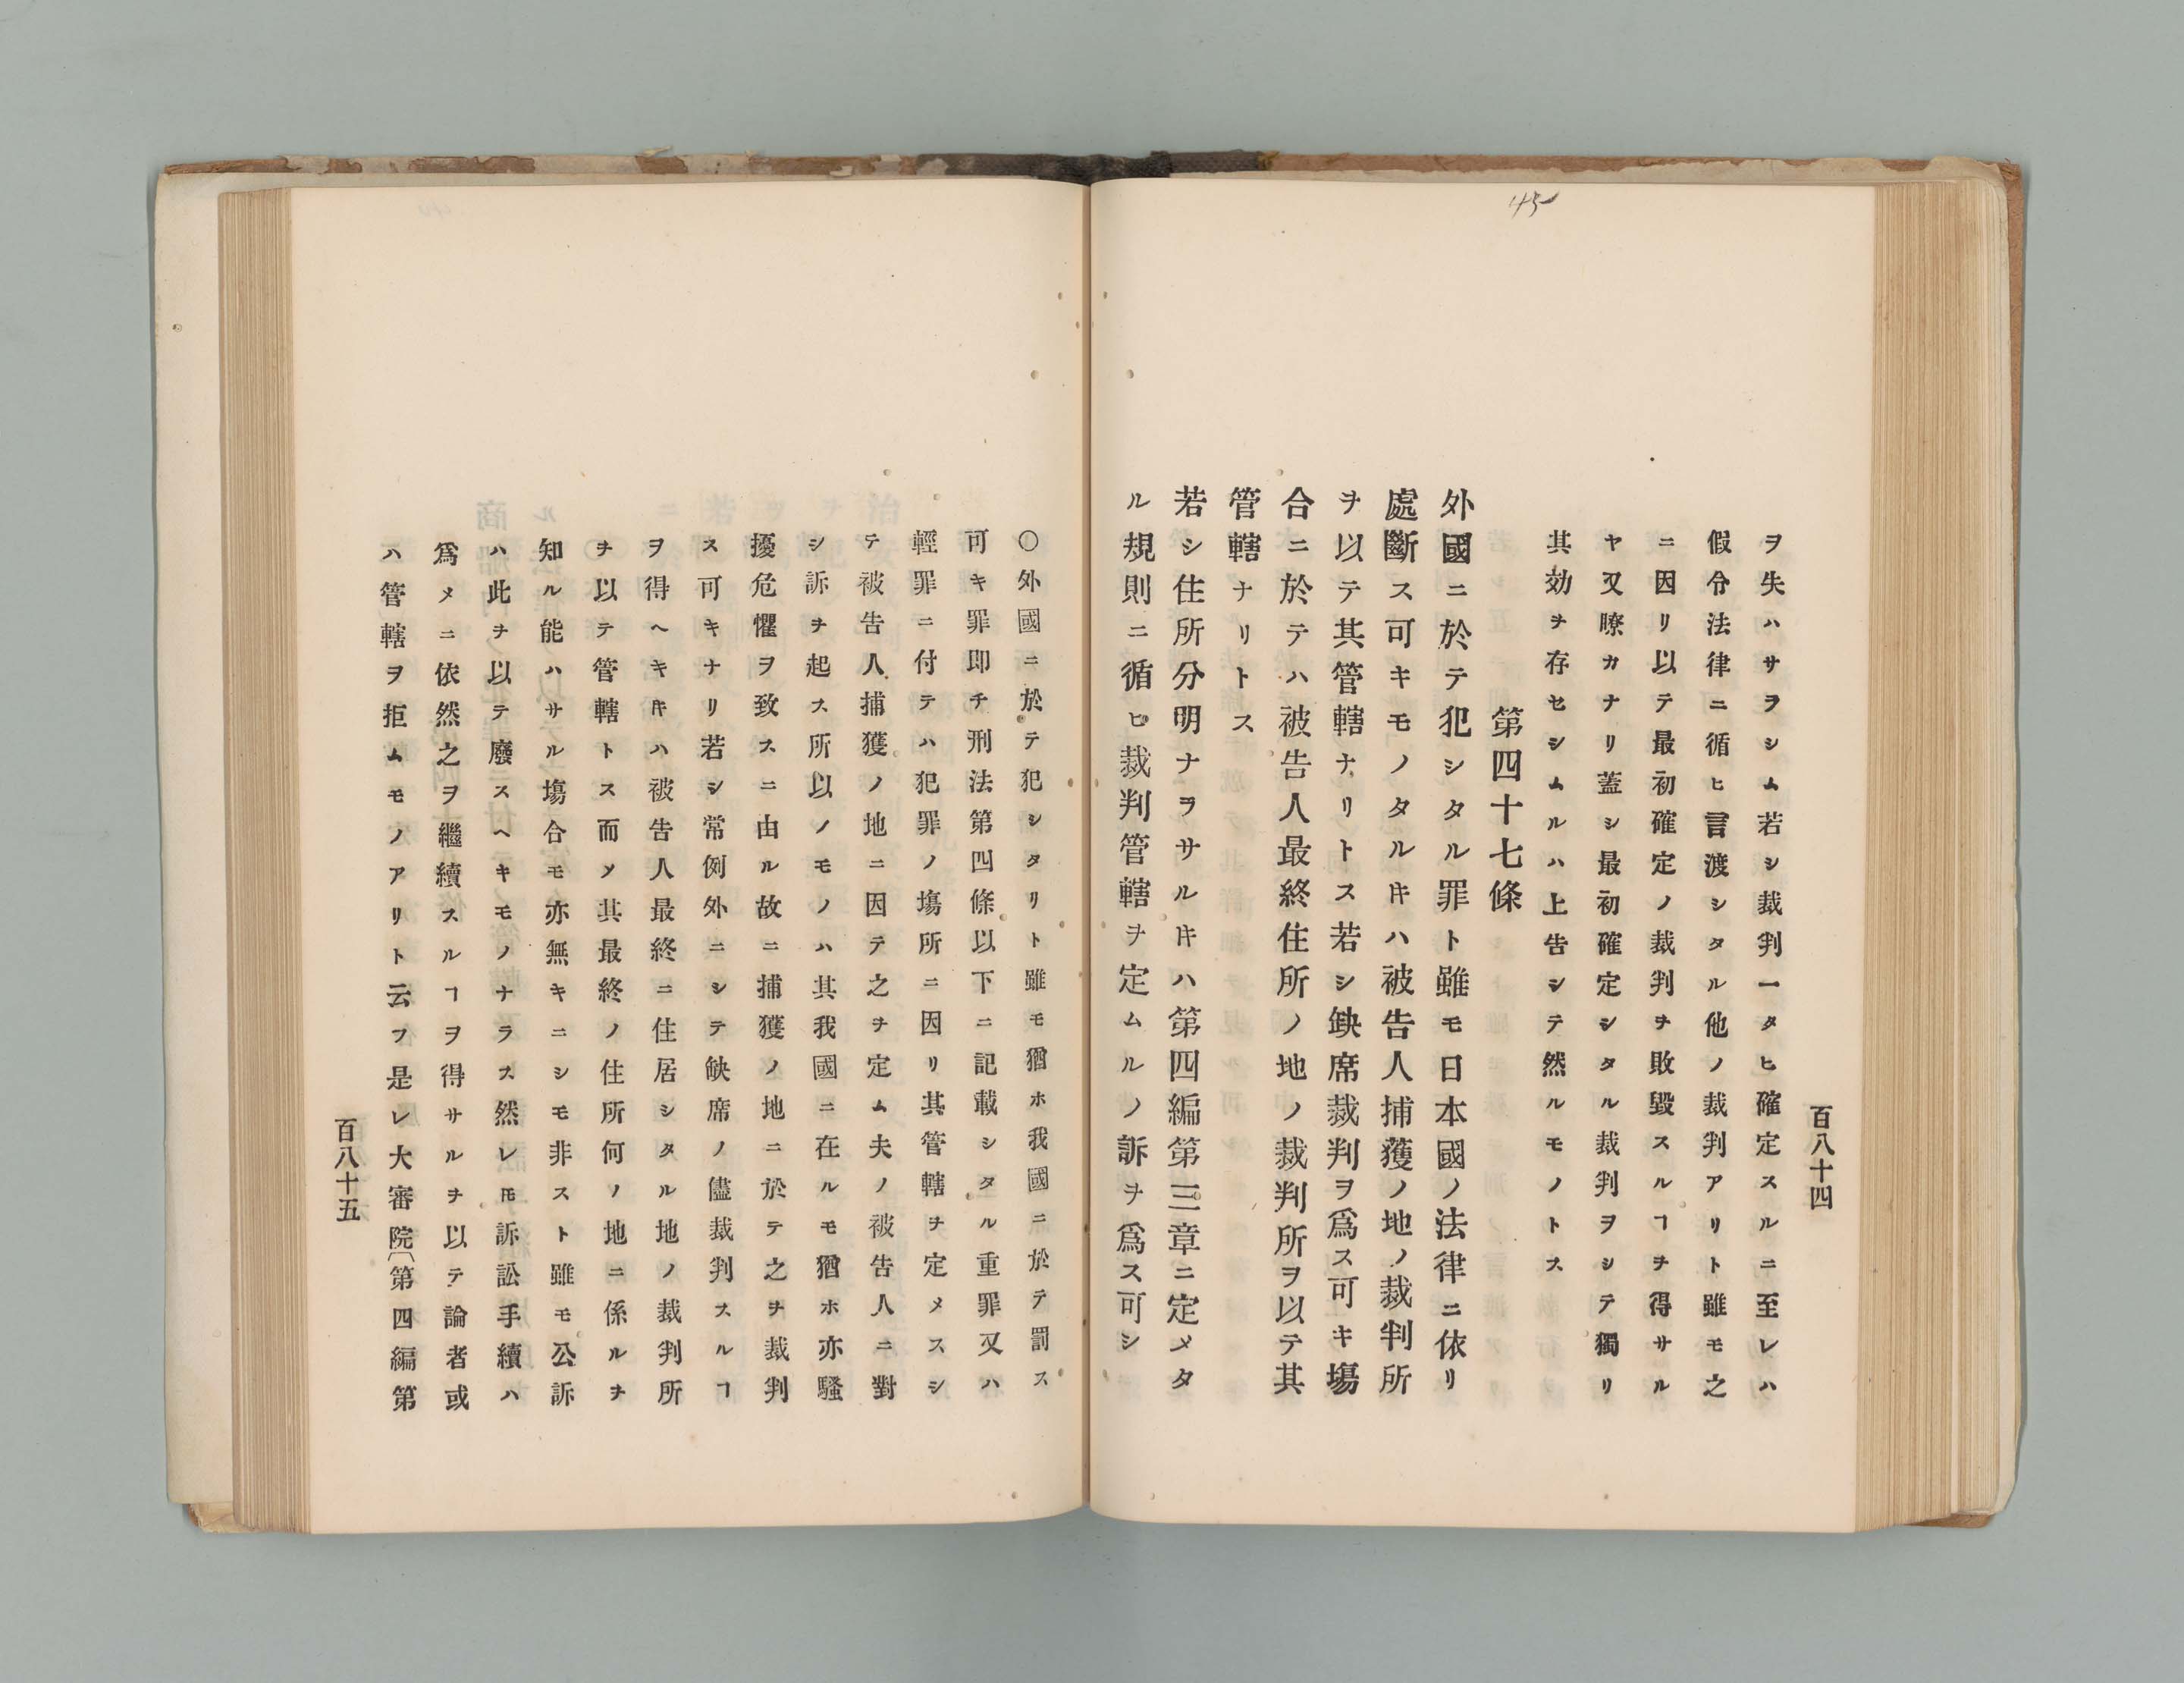 45
百八十四
ヲ失ハサヲシム若シ裁判一タヒ確定スルニ至レハ
假令法律ニ循ヒ言渡シタル他ノ裁判アリト雖モ之
ニ因リ以テ最初確定ノ裁判ヲ敗毀スルヿヲ得サル
ヤ又瞭カナリ蓋シ最初確定シタル裁判ヲシテ獨リ
其効ヲ存セシムルハ上告シテ然ルモノトス
第四十七條
外國ニ於テ犯シタル罪ト雖モ日本國ノ法律ニ依リ
處斷ス可キモノタルキハ被告人捕獲ノ地ノ裁判所
ヲ以テ其管轄ナリトス若シ缺席裁判ヲ爲ス可キ塲
合ニ於テハ被告人最終住所ノ地ノ裁判所ヲ以テ其
管轄ナリトス
若シ住所分明ナヲサルキハ第四編第三章ニ定メタ
ル規則ニ循ヒ裁判管轄ヲ定ムルノ訴ヲ爲ス可シ
〇外國ニ於テ犯シタリト雖モ猶ホ我國ニ於テ罰ス
可キ罪即チ刑法第四條以下ニ記載シタル重罪又ハ
輕罪ニ付テハ犯罪ノ塲所ニ因リ其管轄ヲ定メスシ
テ被告人捕獲ノ地ニ因テ之ヲ定ム夫ノ被告人ニ對
シ訴ヲ起ス所以ノモノハ其我國ニ在ルモ猶ホ亦騷
擾危懼ヲ致スニ由ル故ニ捕獲ノ地ニ於テ之ヲ裁判
ス可キナリ若シ常例外ニシテ缺席ノ儘裁判スルヿ
ヲ得ヘキキハ被告人最終ニ住居シタル地ノ裁判所
ヲ以テ管轄トス而メ其最終ノ住所何ノ地ニ係ルヲ
知ル能ハサル塲合モ亦無キニシモ非スト雖モ公訴
ハ此ヲ以テ廢スヘキモノナラス然レ𪜈訴訟手續ハ
爲メニ依然之ヲ繼續スルヿヲ得サルヲ以テ論者或
ハ管轄ヲ拒ムモノアリト云フ是レ大審院(第四編第
百八十五